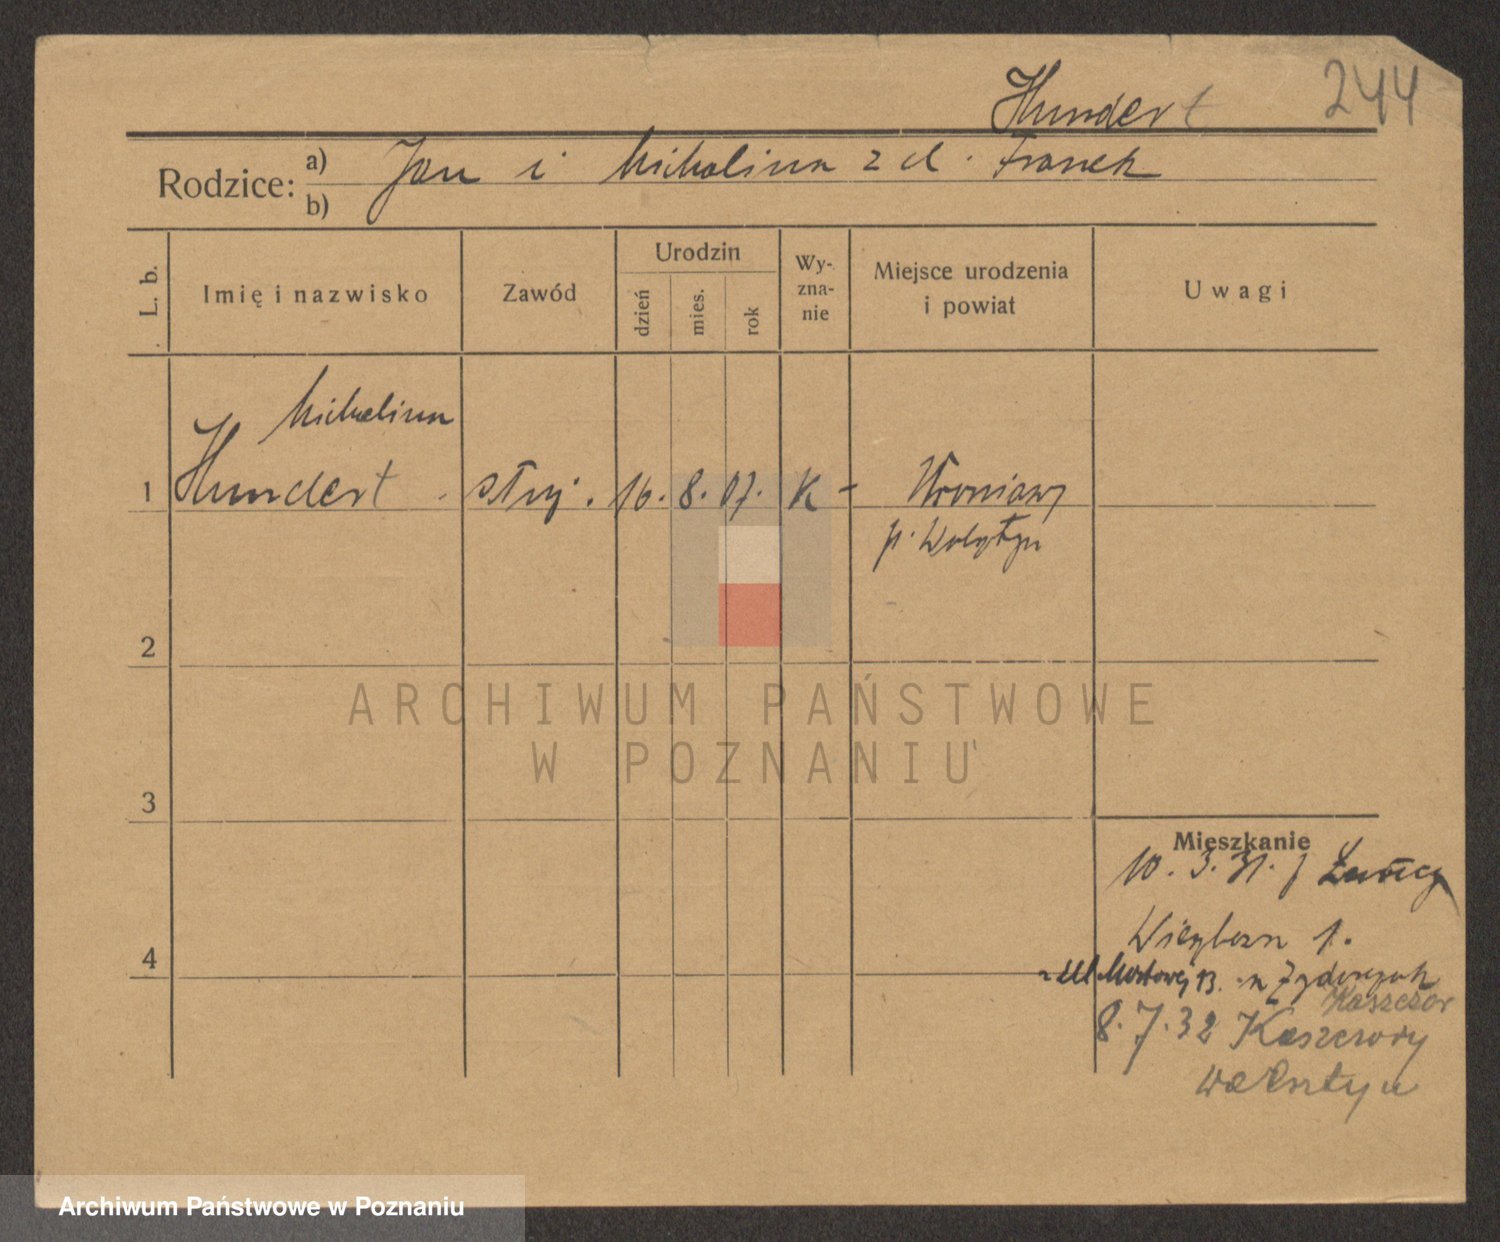 Hundert 244
Rodzice: a) Jan i Michalina z d. Franek
b)
L. b.
Imię i nazwisko
Zawód
Urodzin
dzień
mies.
rok
Wy-
zna-
nie
Miejsce urodzenia
i powiat
Uwagi
Michalina
1 Hundert służ. 16. 8. 07. K - Wroniawy
p. Wolsztyn
2
ARCHIWUM PAŃSTWOWE
W POZNANIU
3
Mieszkanie
10. 3. 31.
4
1.
Mostowej 13.
Kaszczor
8. 7. 32 Kaszczory
Wolsztyn
Archiwum Państwowe w Poznaniu